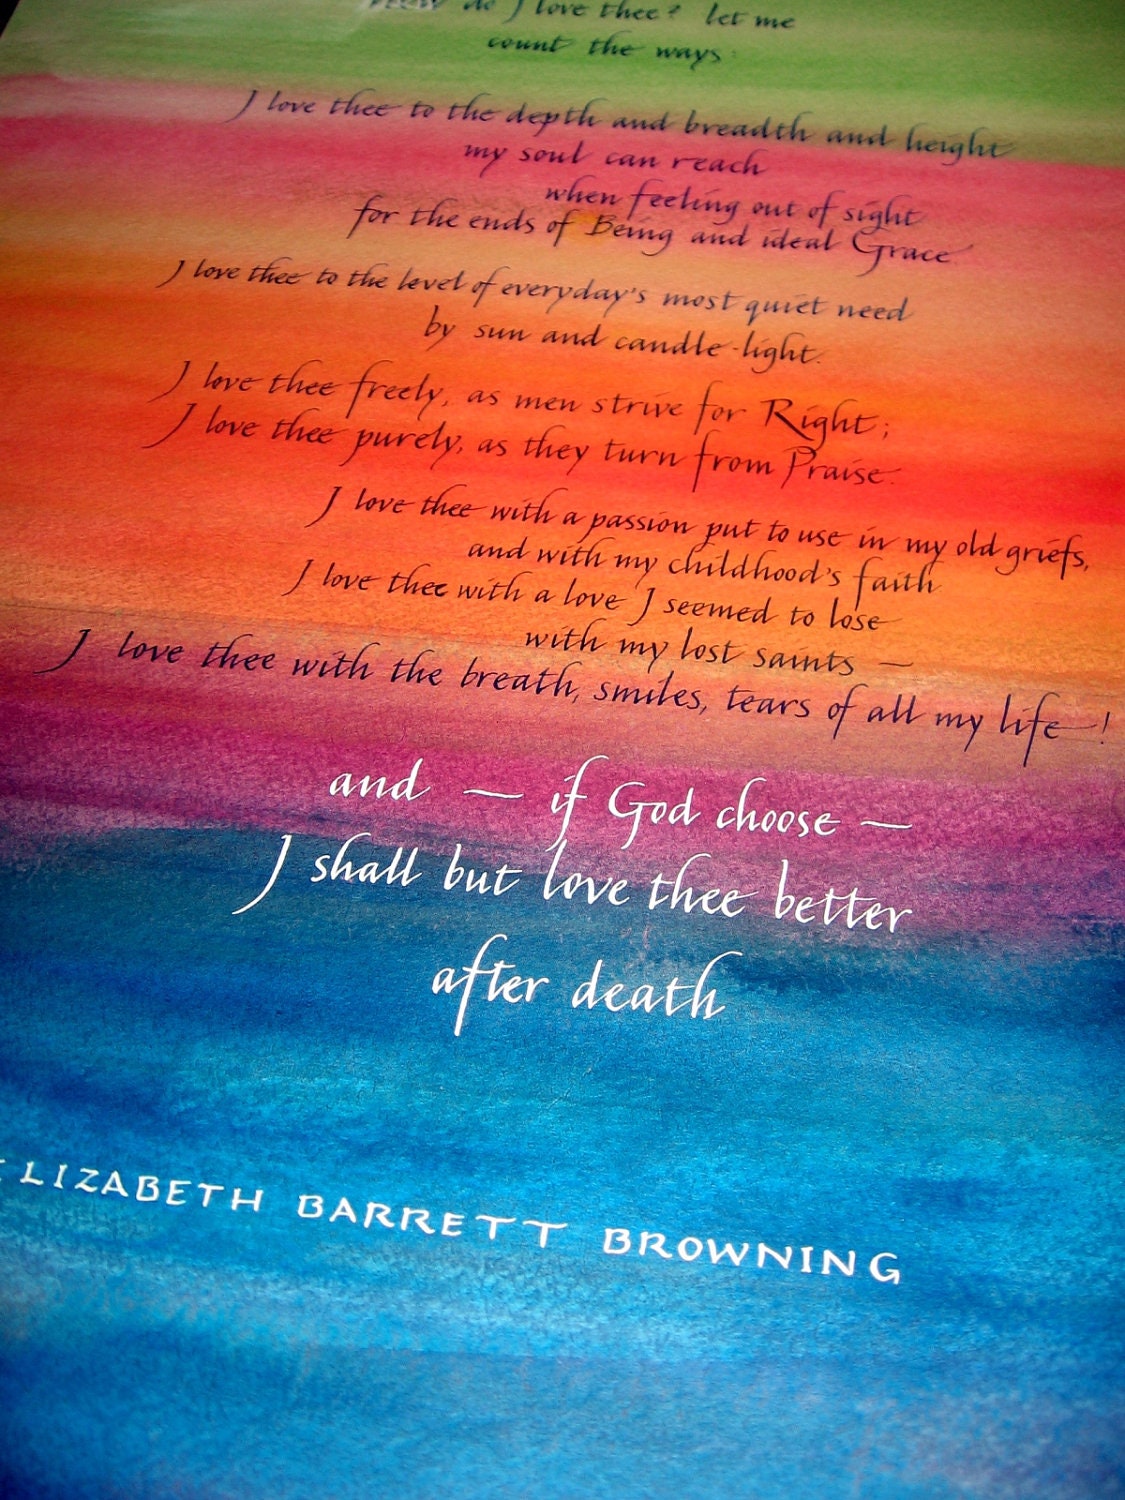 How do I love thee? let me
count the ways:
I love thee to the depth and breadth and height
my soul can reach
when feeling out of sight
for the ends of Being and ideal Grace
I love thee to the level of everyday's most quiet need
by sun and candle-light.
I love thee freely, as men strive for Right;
I love thee purely, as they turn from Praise.
I love thee with a passion put to use in my old griefs,
and with my childhood's faith
I love thee with a love I seemed to lose
with my lost saints —
I love thee with the breath, smiles, tears of all my life!
and — if God choose —
I shall but love thee better
after death
ELIZABETH BARRETT BROWNING